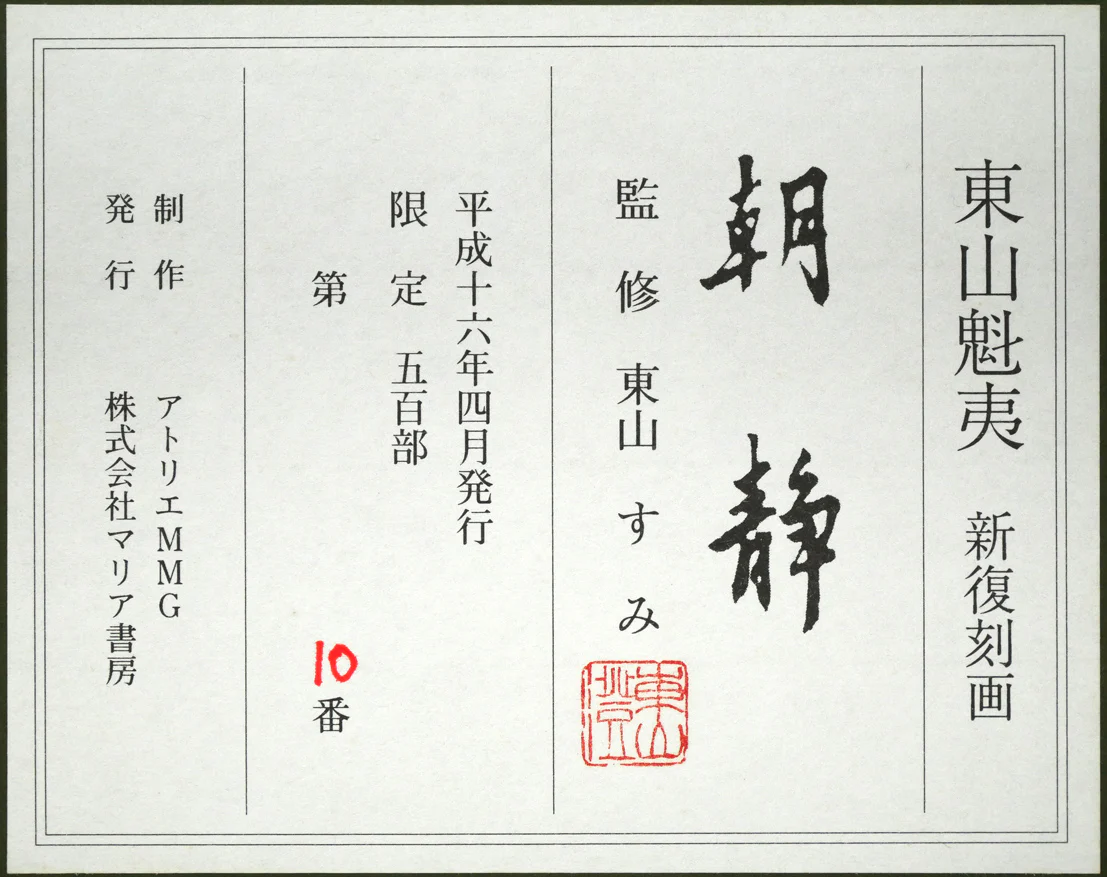 東山魁夷 新復刻画
朝静
監修 東山すみ
平成十六年四月発行
限定 五百部
第 10 番
制作 アトリエMMG
発行 株式会社マリア書房